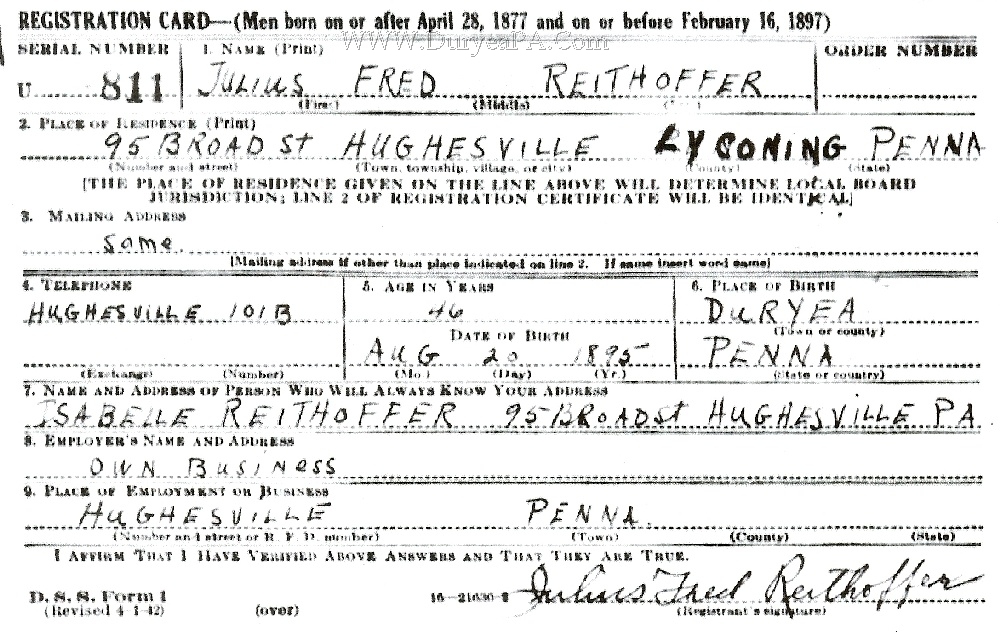 REGISTRATION CARD—(Men born on or after April 28, 1877 and on or before February 16, 1897)
www.DuryeaPA.Com
SERIAL NUMBER 1. NAME (Print) ORDER NUMBER
U 811 JULIUS FRED REITHOFFER
(First) (Middle)
2. PLACE OF RESIDENCE (Print)
95 BROAD St HUGHESVILLE LYCOMING PENNA
(Number and street) (Town, township, village, or city) (County) (State)
[THE PLACE OF RESIDENCE GIVEN ON THE LINE ABOVE WILL DETERMINE LOCAL BOARD
JURISDICTION; LINE 2 OF REGISTRATION CERTIFICATE WILL BE IDENTICAL]
3. MAILING ADDRESS
Same.
[Mailing address if other than place indicated on line 2. If same insert word same]
4. TELEPHONE 5. AGE IN YEARS 6. PLACE OF BIRTH
HUGHESVILLE 101B 46 DURYEA
(Town or county)
DATE OF BIRTH
AUG 20 1895 PENNA
(Exchange) (Number) (Mo.) (Day) (Yr.) (State or country)
7. NAME AND ADDRESS OF PERSON WHO WILL ALWAYS KNOW YOUR ADDRESS
ISABELLE REITHOFFER 95 BROAD St HUGHESVILLE PA
8. EMPLOYER'S NAME AND ADDRESS
OWN BUSINESS
9. PLACE OF EMPLOYMENT OR BUSINESS
HUGHESVILLE PENNA.
(Number and street or R. F. D. number) (Town) (County) (State)
I AFFIRM THAT I HAVE VERIFIED ABOVE ANSWERS AND THAT THEY ARE TRUE.
Julius Fred Reithoffer
D. S. S. Form 1 16—21630-2 (Registrant's signature)
(Revised 4-1-42) (over)